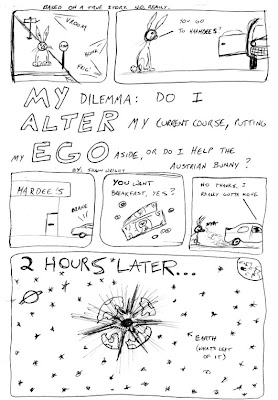 BASED ON A TRUE STORY. NO, REALLY.
VROOM
HONK
YOU GO
TO HARDEES?
MY DILEMMA: DO I
ALTER MY CURRENT COURSE, PUTTING
MY EGO ASIDE, OR DO I HELP THE
AUSTRIAN BUNNY?
BY:
HARDEE'S
YOU WANT
BREAKFAST, YES?
NO THANKS, I
REALLY GOTTA MOVE
2 HOURS LATER...
EARTH
(WHAT'S LEFT
OF IT)